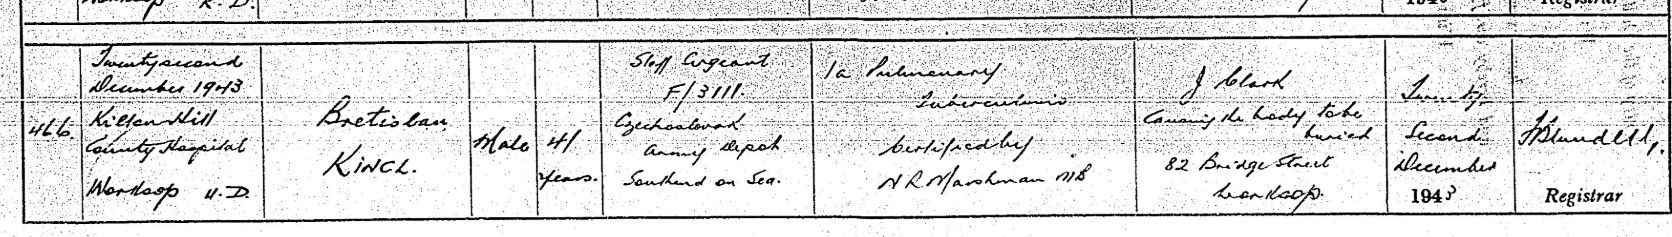 R. D.
194
Registrar
466.
Twenty second
December 1943
Kilton Hill
County Hospital
Worksop U.D.
Bretislav
KINCL.
Male
41
years.
Staff Sergeant
F/3111.
Czechoslovak
Army Depot
Southend on Sea.
1a Pulmonary
Tuberculosis
Certified by
N R Marshman MB
J Clark
Causing the body to be
buried
82 Bridge Street
Worksop.
Twenty
Second
December
1943
Registrar